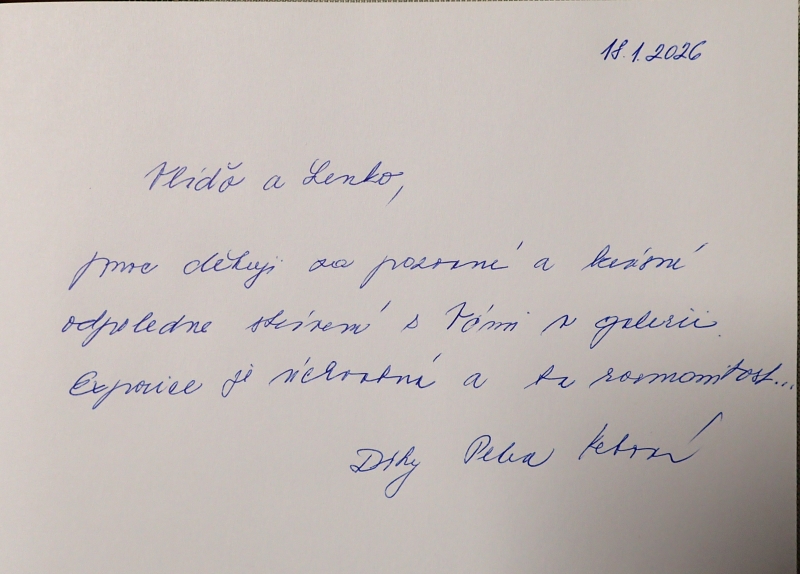 18.1.2026
Vláďo a Lenko,
moc děkuji za pozvání a krásné
odpoledne strávené s Vámi v galerii.
Expozice je úchvatná a ta rozmanitost...
Díky Petra